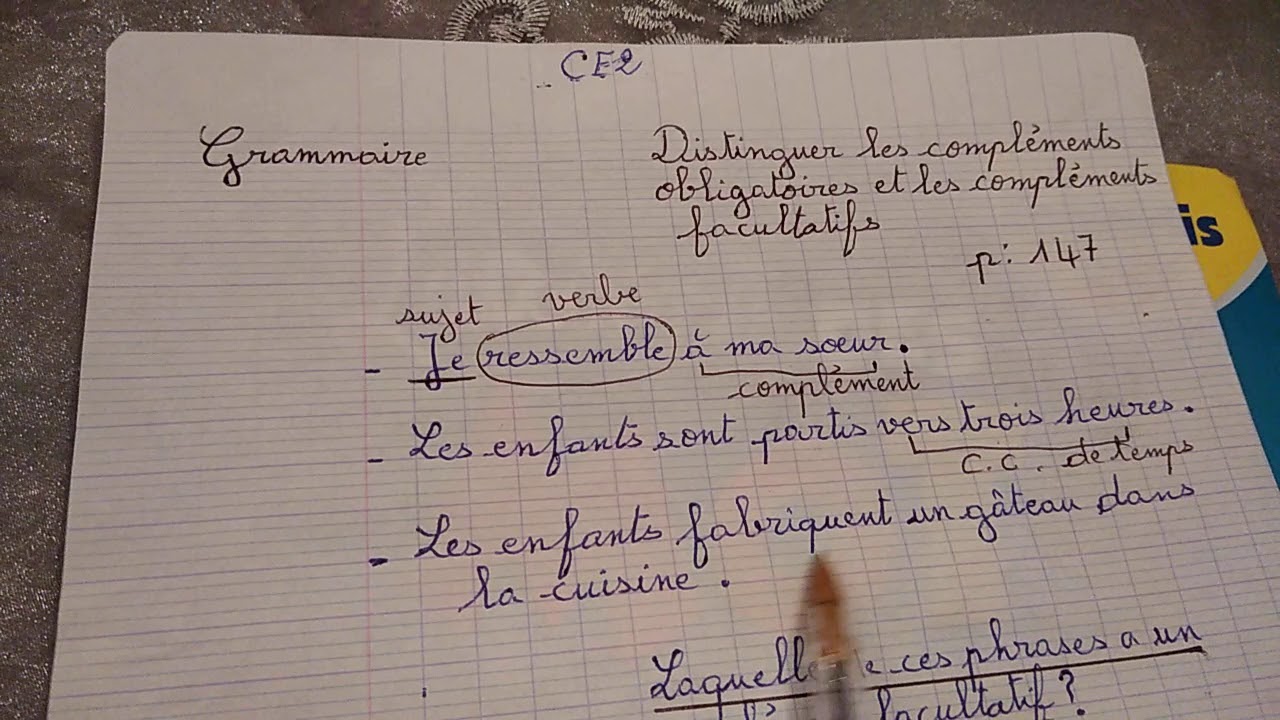 CE2
Grammaire
Distinguer les compléments
obligatoires et les compléments
facultatifs
p: 147
is
sujet verbe
- Je ressemble à ma soeur.
complément
- Les enfants sont partis vers trois heures.
c.c. de temps
- Les enfants fabriquent un gâteau dans
la cuisine.
ces phrases a un
facultatif?